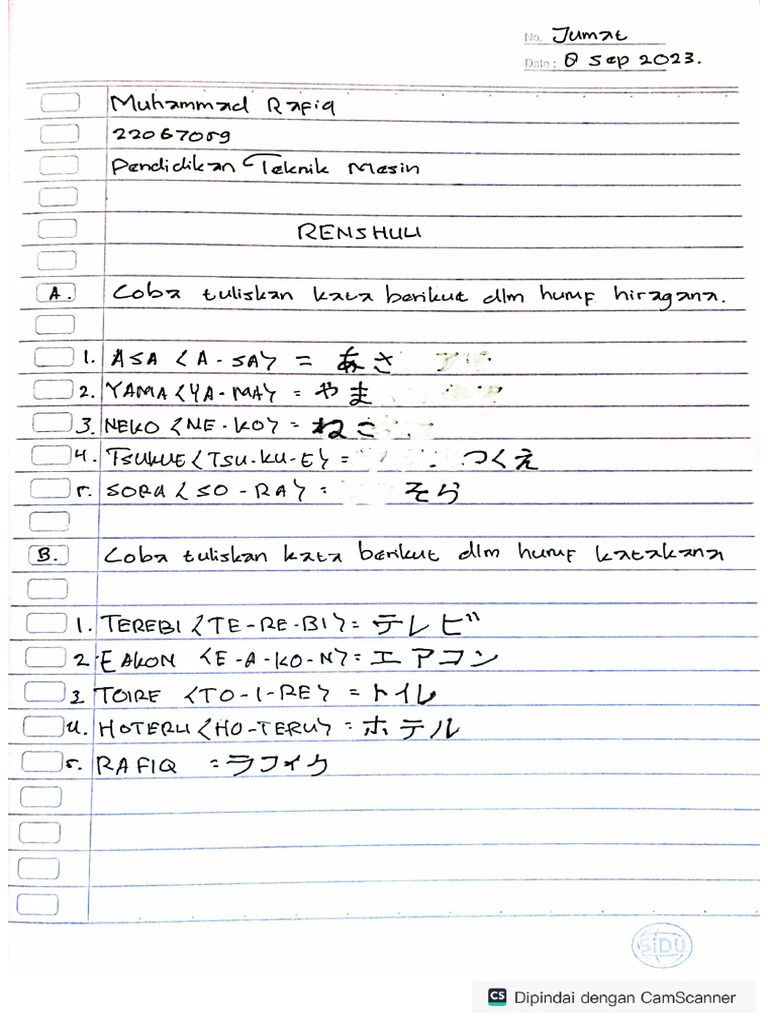 No. Jumat
Date: 8 Sep 2023.
Muhammad Rafiq
22067059
Pendidikan Teknik Mesin
RENSHUU
A. Coba tuliskan kata berikut dlm huruf hiragana.
1. ASA <A-SA> = あさ
2. YAMA <YA-MA> = やま
3. NEKO <NE-KO> = ねこ
4. TSUKUE <TSU-KU-E> = つくえ
5. SORA <SO-RA> = そら
B. Coba tuliskan kata berikut dlm huruf katakana
1. TEREBI <TE-RE-BI> = テレビ
2 EAKON <E-A-KO-N> = エアコン
3 TOIRE <TO-I-RE> = トイレ
4. HOTERU <HO-TERU> = ホテル
5. RAFIQ = ラフィク
SiDU
CS Dipindai dengan CamScanner